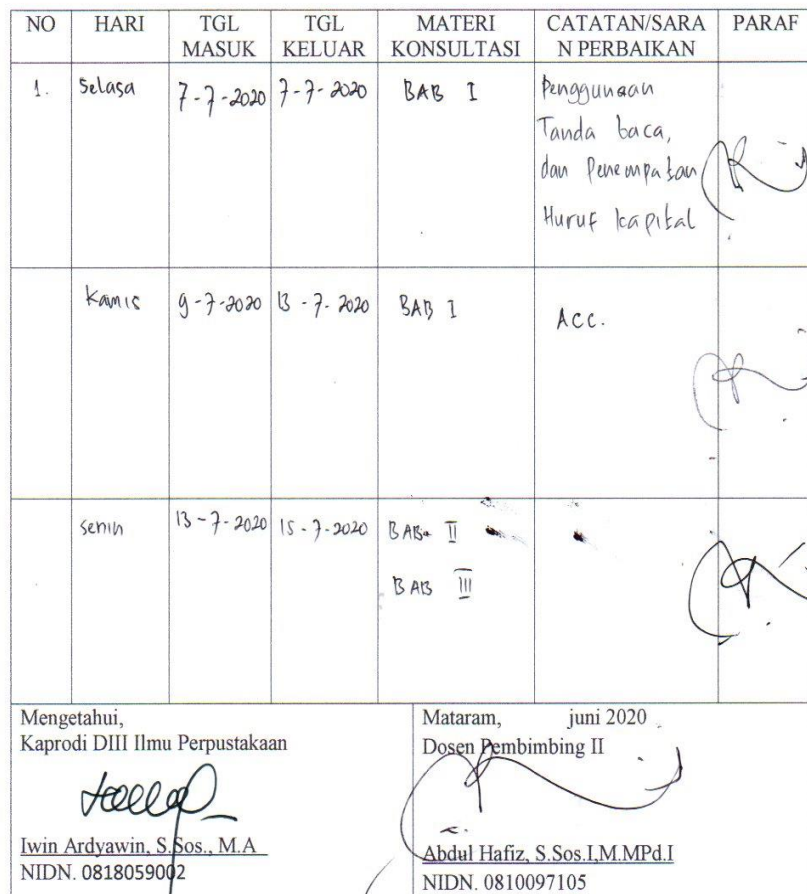 NO HARI TGL MASUK TGL KELUAR MATERI KONSULTASI CATATAN/SARA N PERBAIKAN PARAF
1. Selasa 7-7-2020 7-7-2020 BAB I Penggunaan
Tanda baca,
dan Penempatan
Huruf kapital
Kamis 9-7-2020 13-7-2020 BAB I Acc.
Senin 13-7-2020 15-7-2020 BAB II
BAB III
Mengetahui,
Kaprodi DIII Ilmu Perpustakaan
Iwin Ardyawin, S.Sos., M.A
NIDN. 0818059002
Mataram, juni 2020
Dosen Pembimbing II
Abdul Hafiz, S.Sos.I,M.MPd.I
NIDN. 0810097105